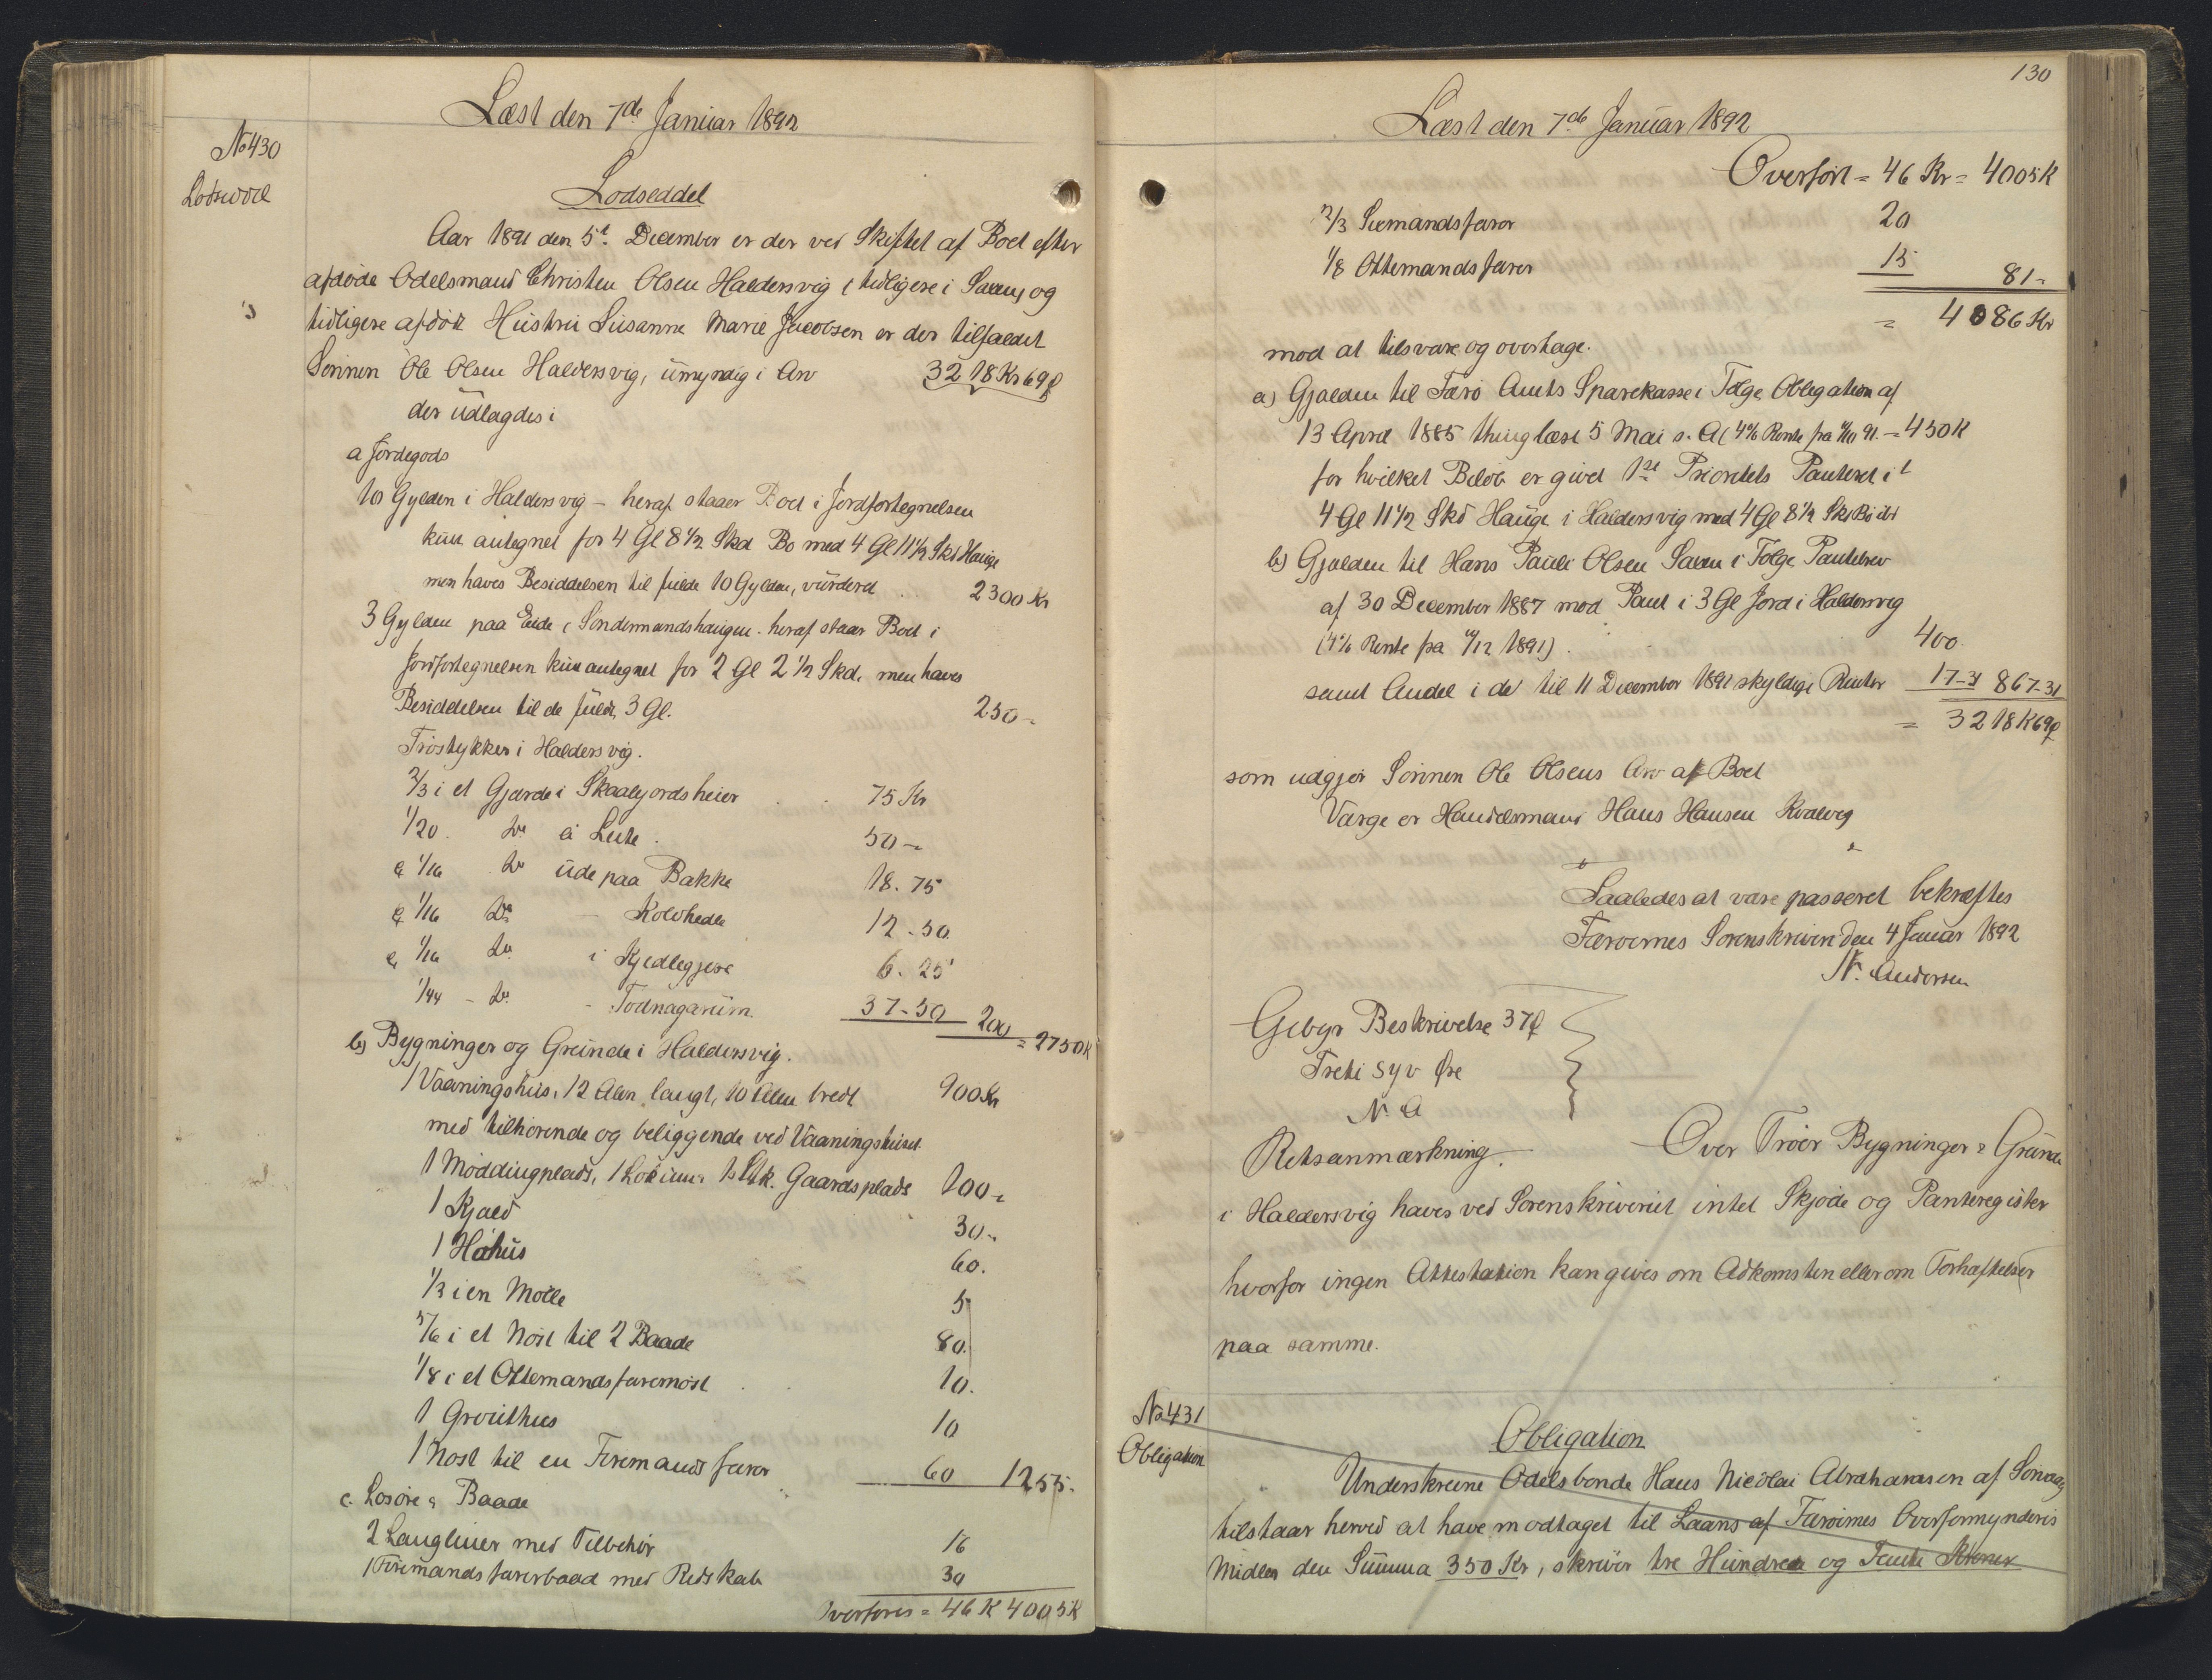 Læst den 7de Januar 1892
No 430
Lodseddel
Aar 1891 den 5t. December er der ved Skiftet af Boet efter
afdøde Odelsmand Christen Olsen Haldersvig (tidligere i Saxen) og
tidligere afdøde Hustru Susanne Marie Jacobsen er der tilfaldet
Sønnen Ole Olsen Haldersvig, umyndig i Arv 3218 Kr 69 Ø
der udlagdes i
a Jordegods
10 Gylden i Haldersvig - heraf staaer Boet i Jordfortegnelsen
kun antegnet for 4 Gl 8 1/2 Skd Bø med 4 Gl 11 1/2 Skd Hauge
men haves Besiddelsen til fulde 10 Gylden, vurderet . . 2300 Kr
3 Gylden paa Eide i Søndermandshaugen. heraf staar Boet i
Jordfortegnelsen kun antegnet for 2 Gl 2 1/2 Skd. men haves
Besiddelsen til de fulde 3 Gl. 250 -
Trøstykker i Haldersvig.
2/3 i et Gjærde i Skaalgjordsheier . . 75 Kr
1/20 . Do á Leite . 50 -
& 1/16 . Do ude paa Bakke 18. 75
& 1/16 Do - Kolvhedle 12 - 50
& 1/16 Do i Kjedlegjere 6. 25
1/44 - Do - Todnagarum. 37 - 50 200 = 2750 K
b) Bygninger og Grunde i Haldersvig.
1 Vaaningshus, 12 Alen langt, 10 Alen bredt 900 Kr
med tilhørende og beliggende ved Vaaningshuset
1 Møddingplads, 1 Lokum & 1 Stk. Gaardsplads 100 -
1 Kjald 30 -
1 Høhus 60.
1/3 i en Mølle 5
5/6 i et Nøst til 2 Baade 80.
1/8 i et Ottemandsfarsnøst . . 10.
1 Grouthus 10
1 Nøst til en Firemandsfarer 60 1255.
c. Løsøre & Baade
2 Langliner med Tilbehør 16
1 Firemandsfarerbaad med Redskab 30
Overføres = 46 K 4005 K
130
Læst den 7de Januar 1892
Overført = 46 Kr = 4005 K
2/3 Sexmandsfarer 20
1/8 Ottemandsfarer 15 81 -
= 4086 Kr
mod at tilsvare og overtage.
a) Gjælden til Færø Amts Sparekasse i Følge Obligation af
13 April 1885 thinglæst 5 Mai s. A (4% Rente fra 11/10 91. = 450 K
for hvilket Beløb er givet 1ste Prioritets Panteret i
4 Gl 11 1/2 Skd Hauge i Haldersvig med 4 Gl 8 1/2 Skd Bø ibd
b) Gjælden til Hans Pauli Olsen Saxen i Følge Pantebrev
af 30 December 1887 mod Pant i 3 Gl Jord i Haldersvig
(4% Rente fra 11/12 1891) . 400.
samt Andel i de til 11 December 1891 skyldige Renter 17 - 31 867 - 31
= 3218 K 69 Ø
som udgjør Sønnen Ole Olsens Arv af Boet
Værge er Handelsmand Hans Hansen Kvalvig
Saaledes at være passeret bekræftes
Færøernes Sorenskriveri den 4 Januar 1892
N. Andersen
Gebyr Beskrivelse 37 Ø
Treti syv Øre
N. A
Retsanmærkning. Over Trøer Bygninger & Grunde
i Haldersvig haves ved Sorenskriveriet intet Skjøde og Panteregister
hvorfor ingen Attestation kan gives om Adkomsten eller om Forhæftelser
paa samme.
No 431
Obligation
Obligation
Underskrevne Odelsbonde Hans Nicolai Abrahamsen af Sørvaag
tilstaar herved at have modtaget til Laans af Færøernes Overformynderis
Midler den Summa 350 Kr, skriver tre Hundrede og Femti Kroner